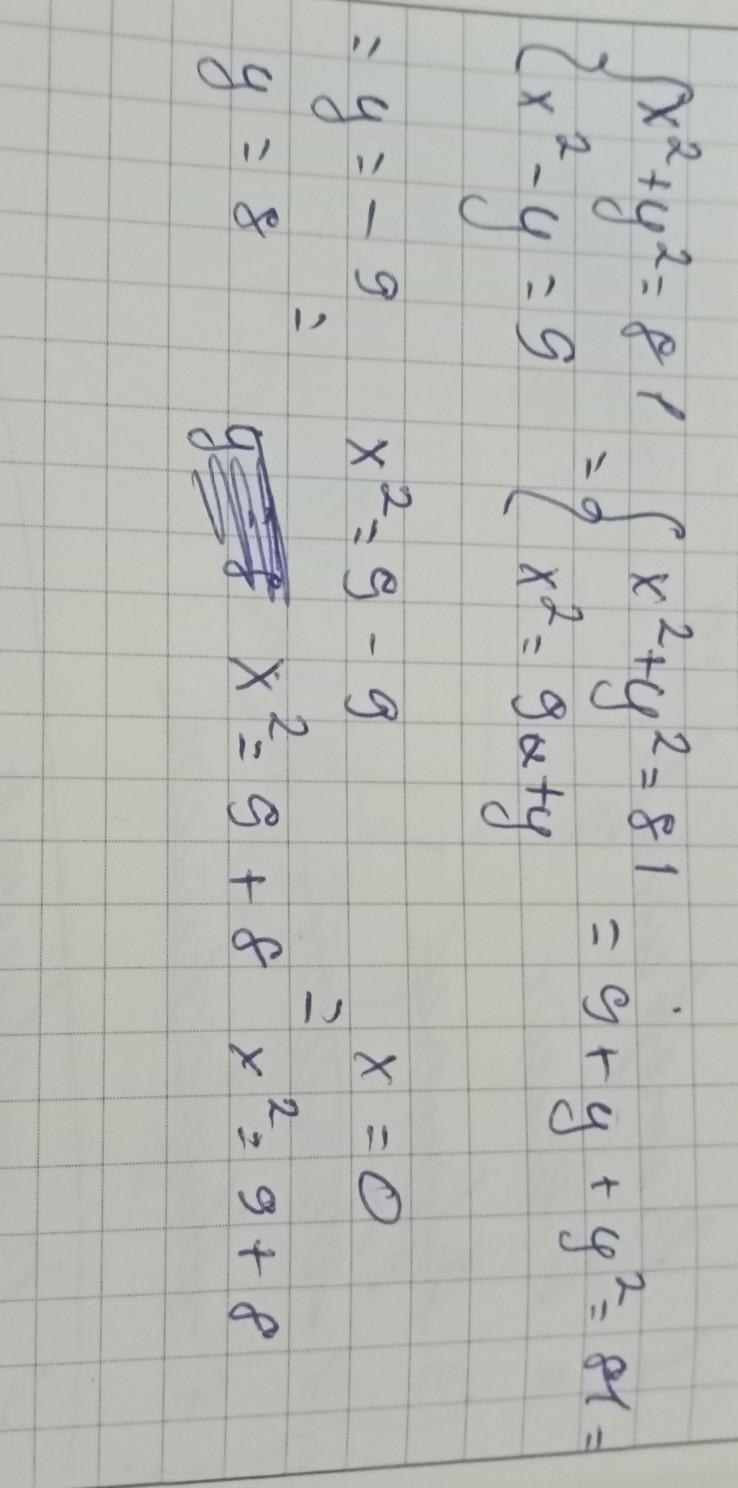 { x² + y² = 81 = { x² + y² = 81
{ x² - y = 9 { x² = 9 + y = 9 + y + y² = 81 =
= y = -9 x² = 9 - 9 x = 0
= =
y = 8 x² = 9 + 8 x² = 9 + 8